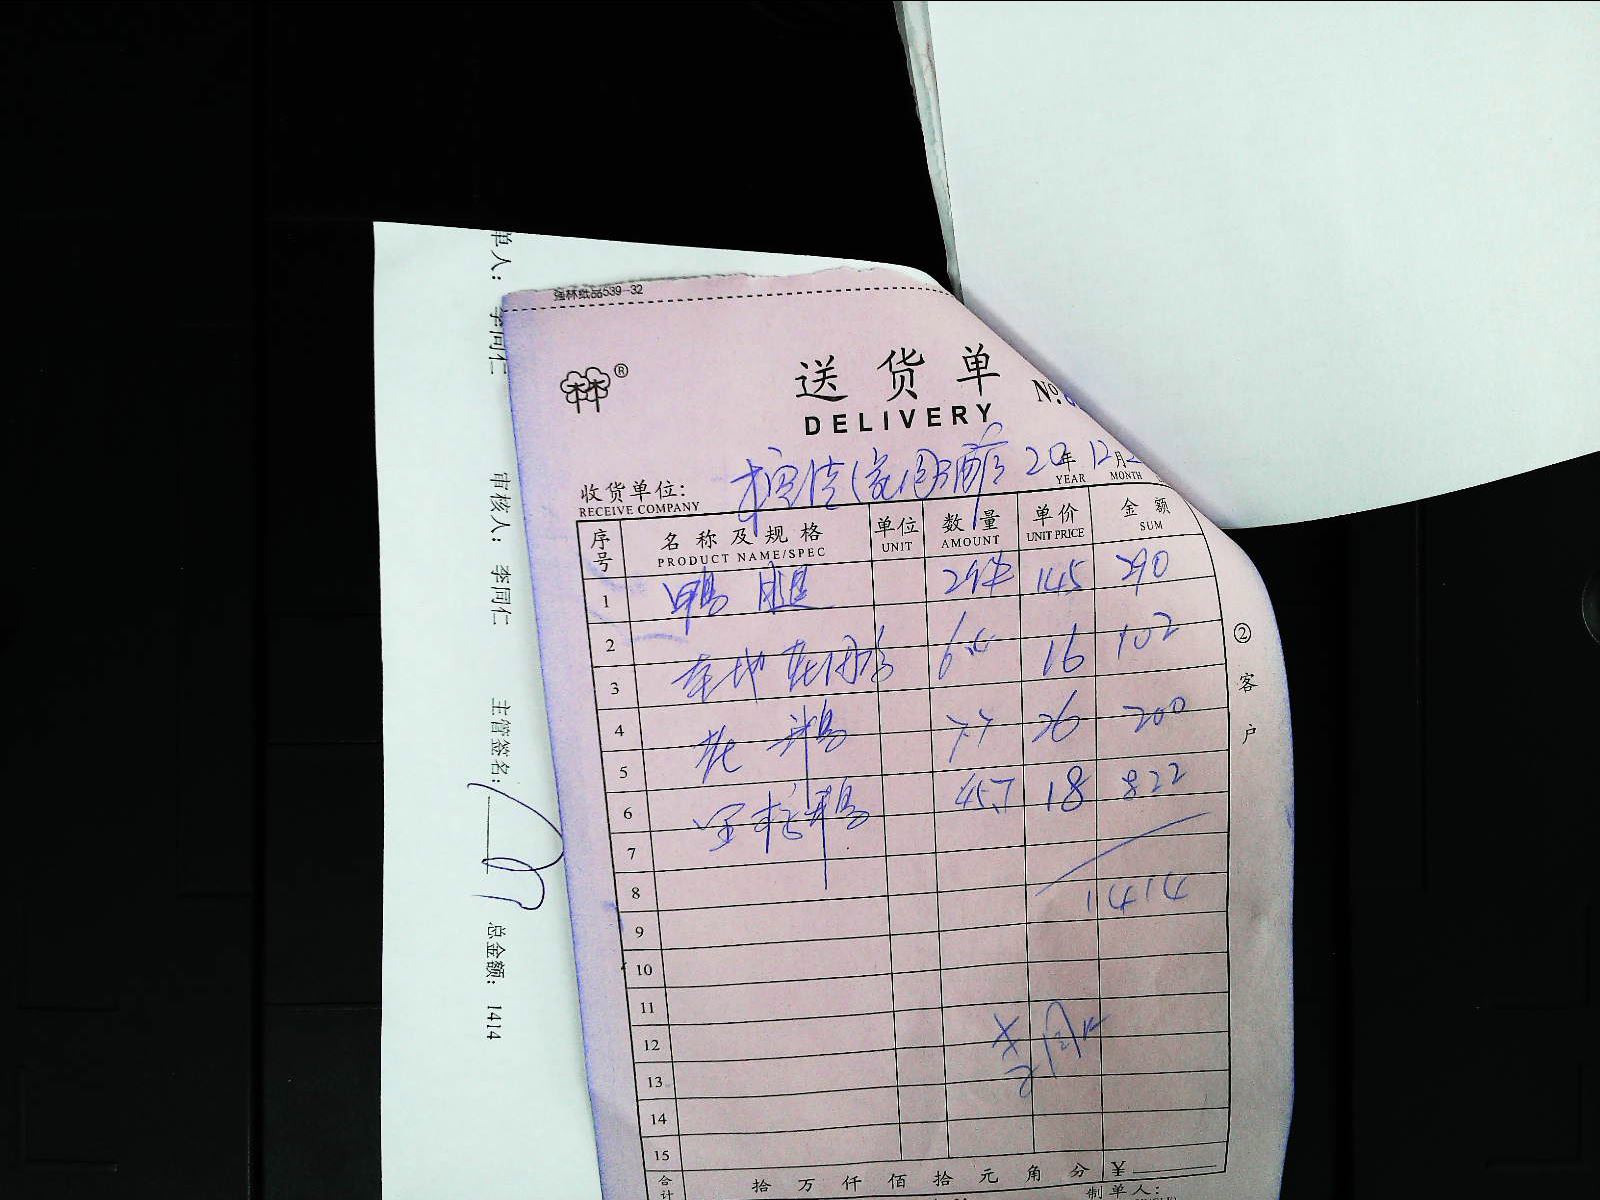 强林纸品539-32
送货单
DELIVERY
No.
收货单位: 20年12月
RECEIVE COMPANY YEAR MONTH
序号 名称及规格 单位 数量 单价 金额
PRODUCT NAME/SPEC UNIT AMOUNT UNIT PRICE SUM
1 鸭腿 2件 145 290
2
3 本地 6.4 16 102
4
5 花 7.7 26 200
6 18 822
7
8
1414
9
10
11
12
13
14
15
李同仁
合计 拾万仟佰拾元角分 ¥
制单人:
②客户
单人: 李同仁
审核人: 李同仁
主管签名:
总金额: 1414